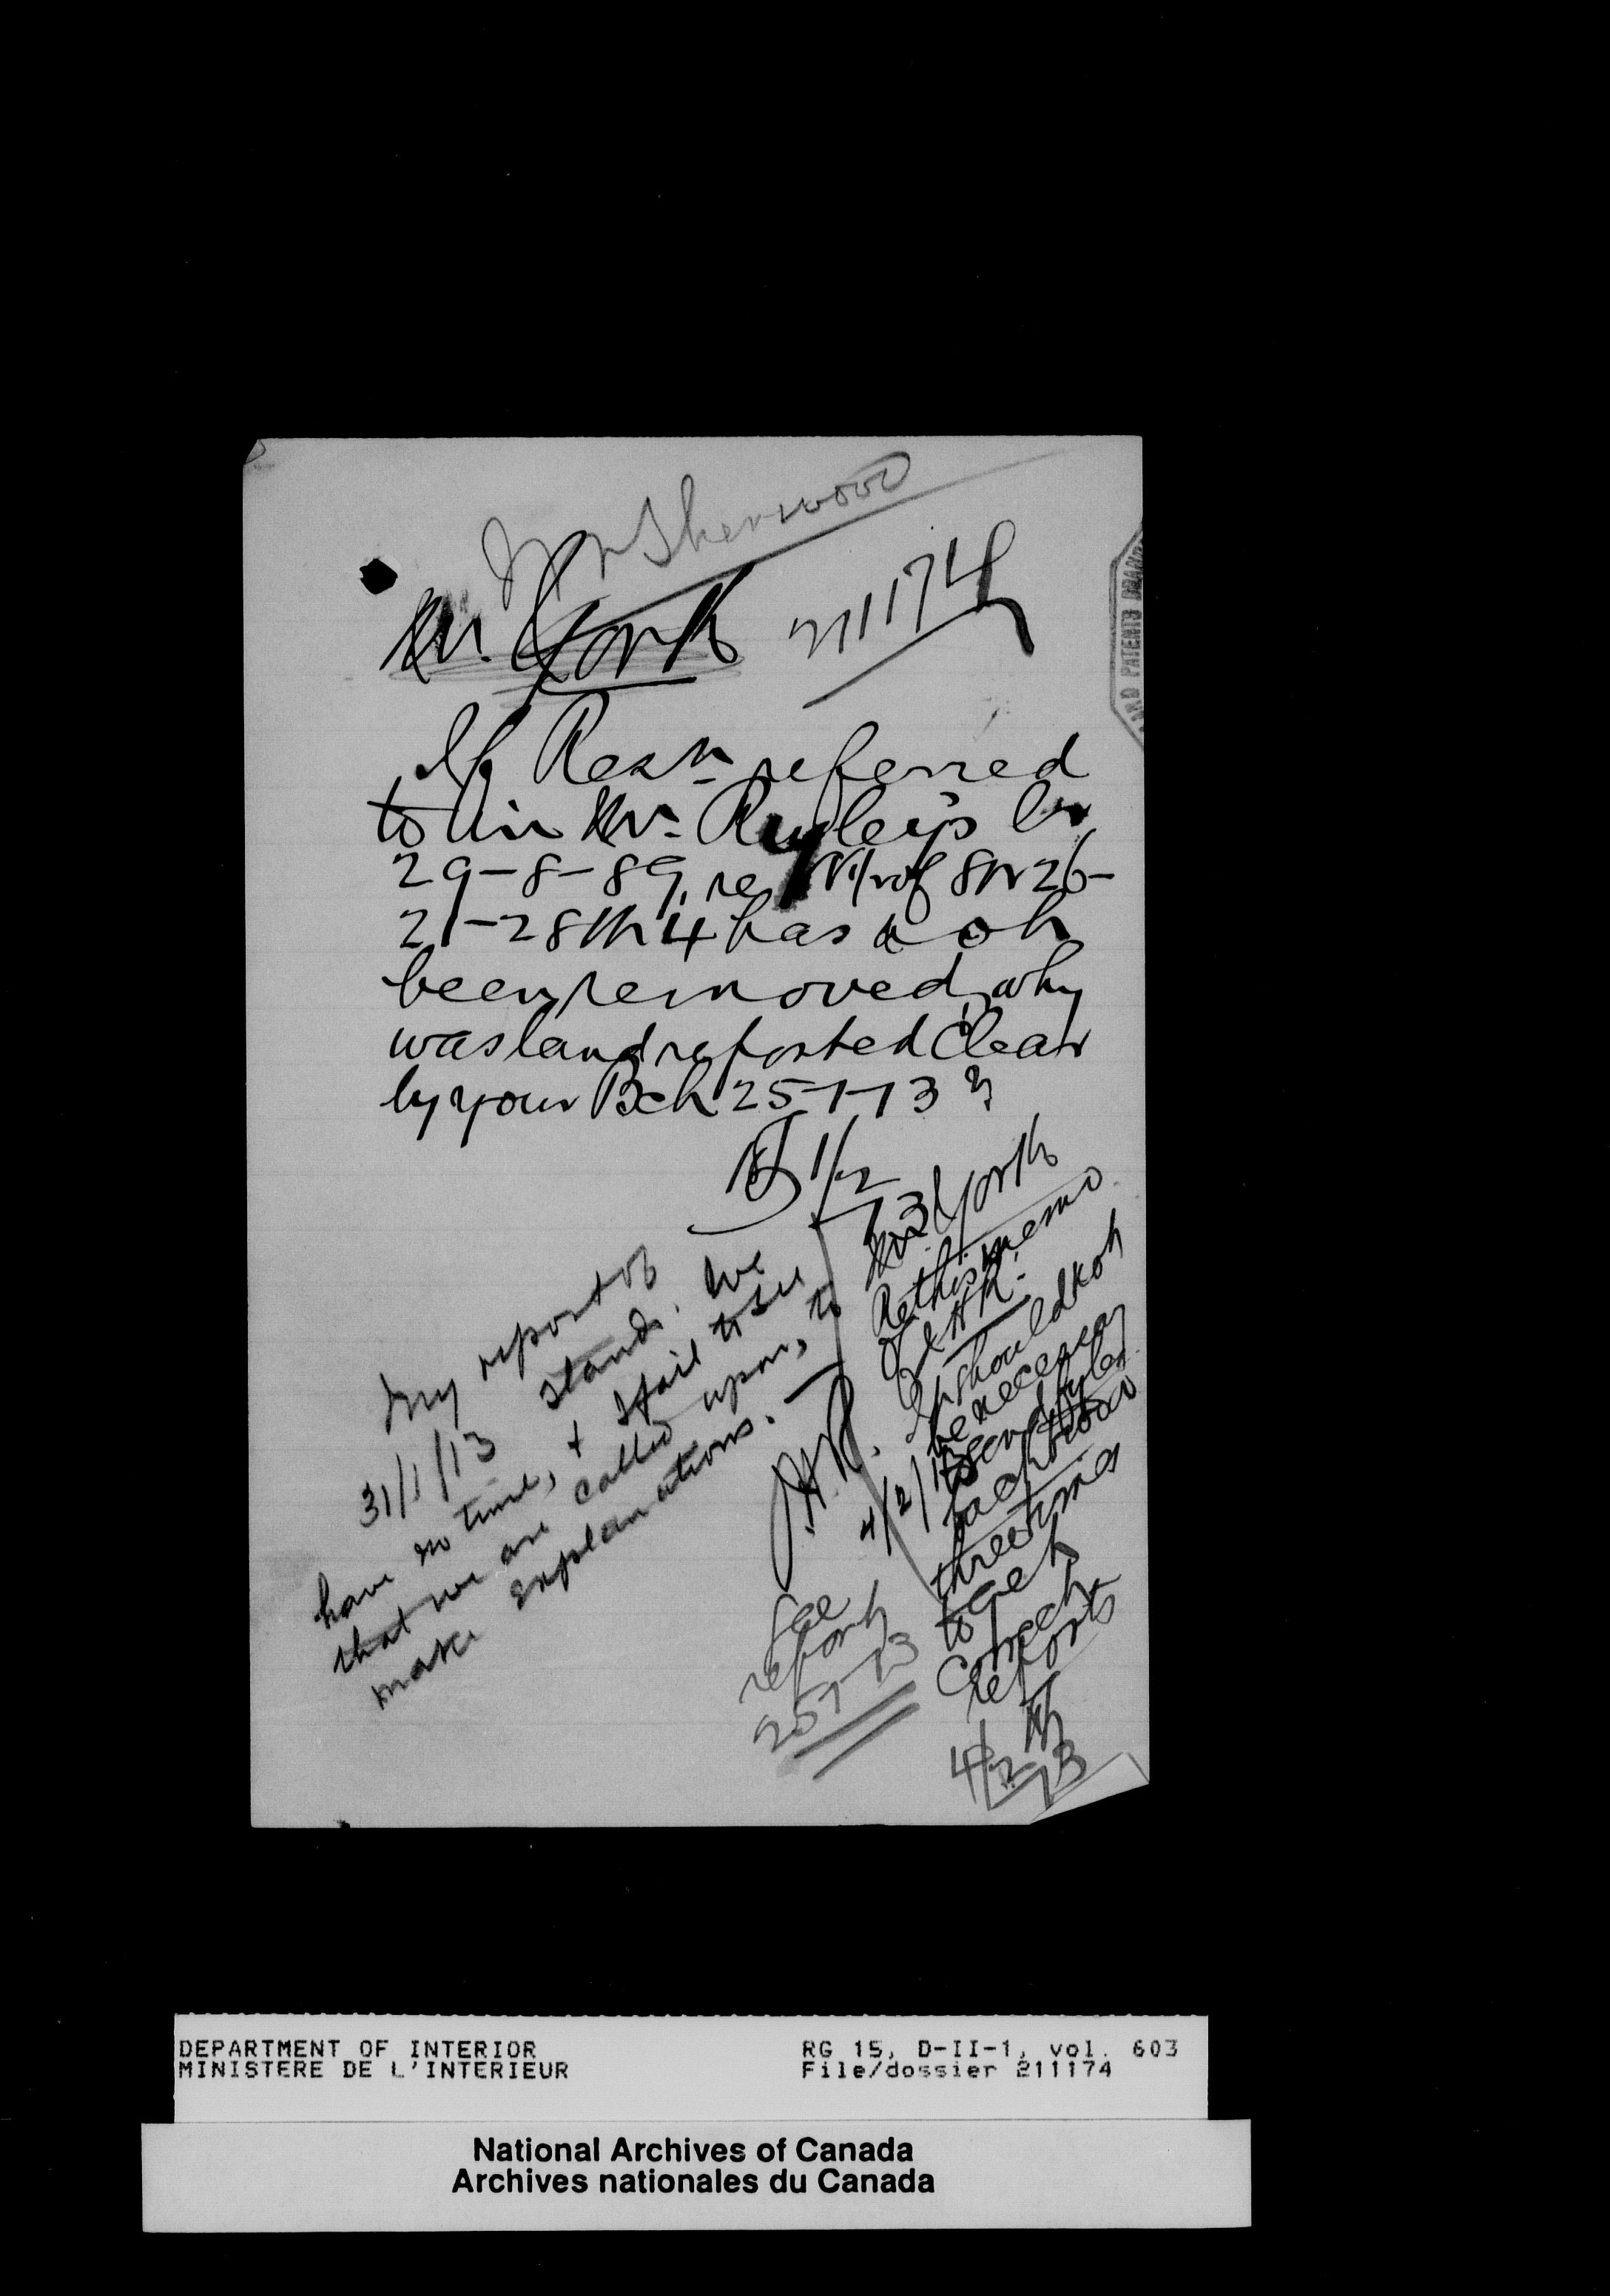 Mr Sherwood
Mr. York 211174
If Resn. referred
to in Mr. Ruyley's Lr
29-8-89, re N½ of SW 26-
21-28 W 4 has not
been removed, why
was land reported Clear
by your Bch 25-1-13?
1/2
13
My report of
31/1/13 stands. We
have no time, & I fail to see
that we are called upon, to
make explanations. —
J.H.R.
4/2/13
Mr. York
Re this memo
of J.H.R.
It should not
be necessary
to send files
back two or
three times
to get
correct
reports
4/2
13
See
report
25-1-13
LAND PATENTS BRANCH
DEPARTMENT OF INTERIOR
MINISTERE DE L'INTERIEUR
RG 15, D-II-1, vol. 603
File/dossier 211174
National Archives of Canada
Archives nationales du Canada